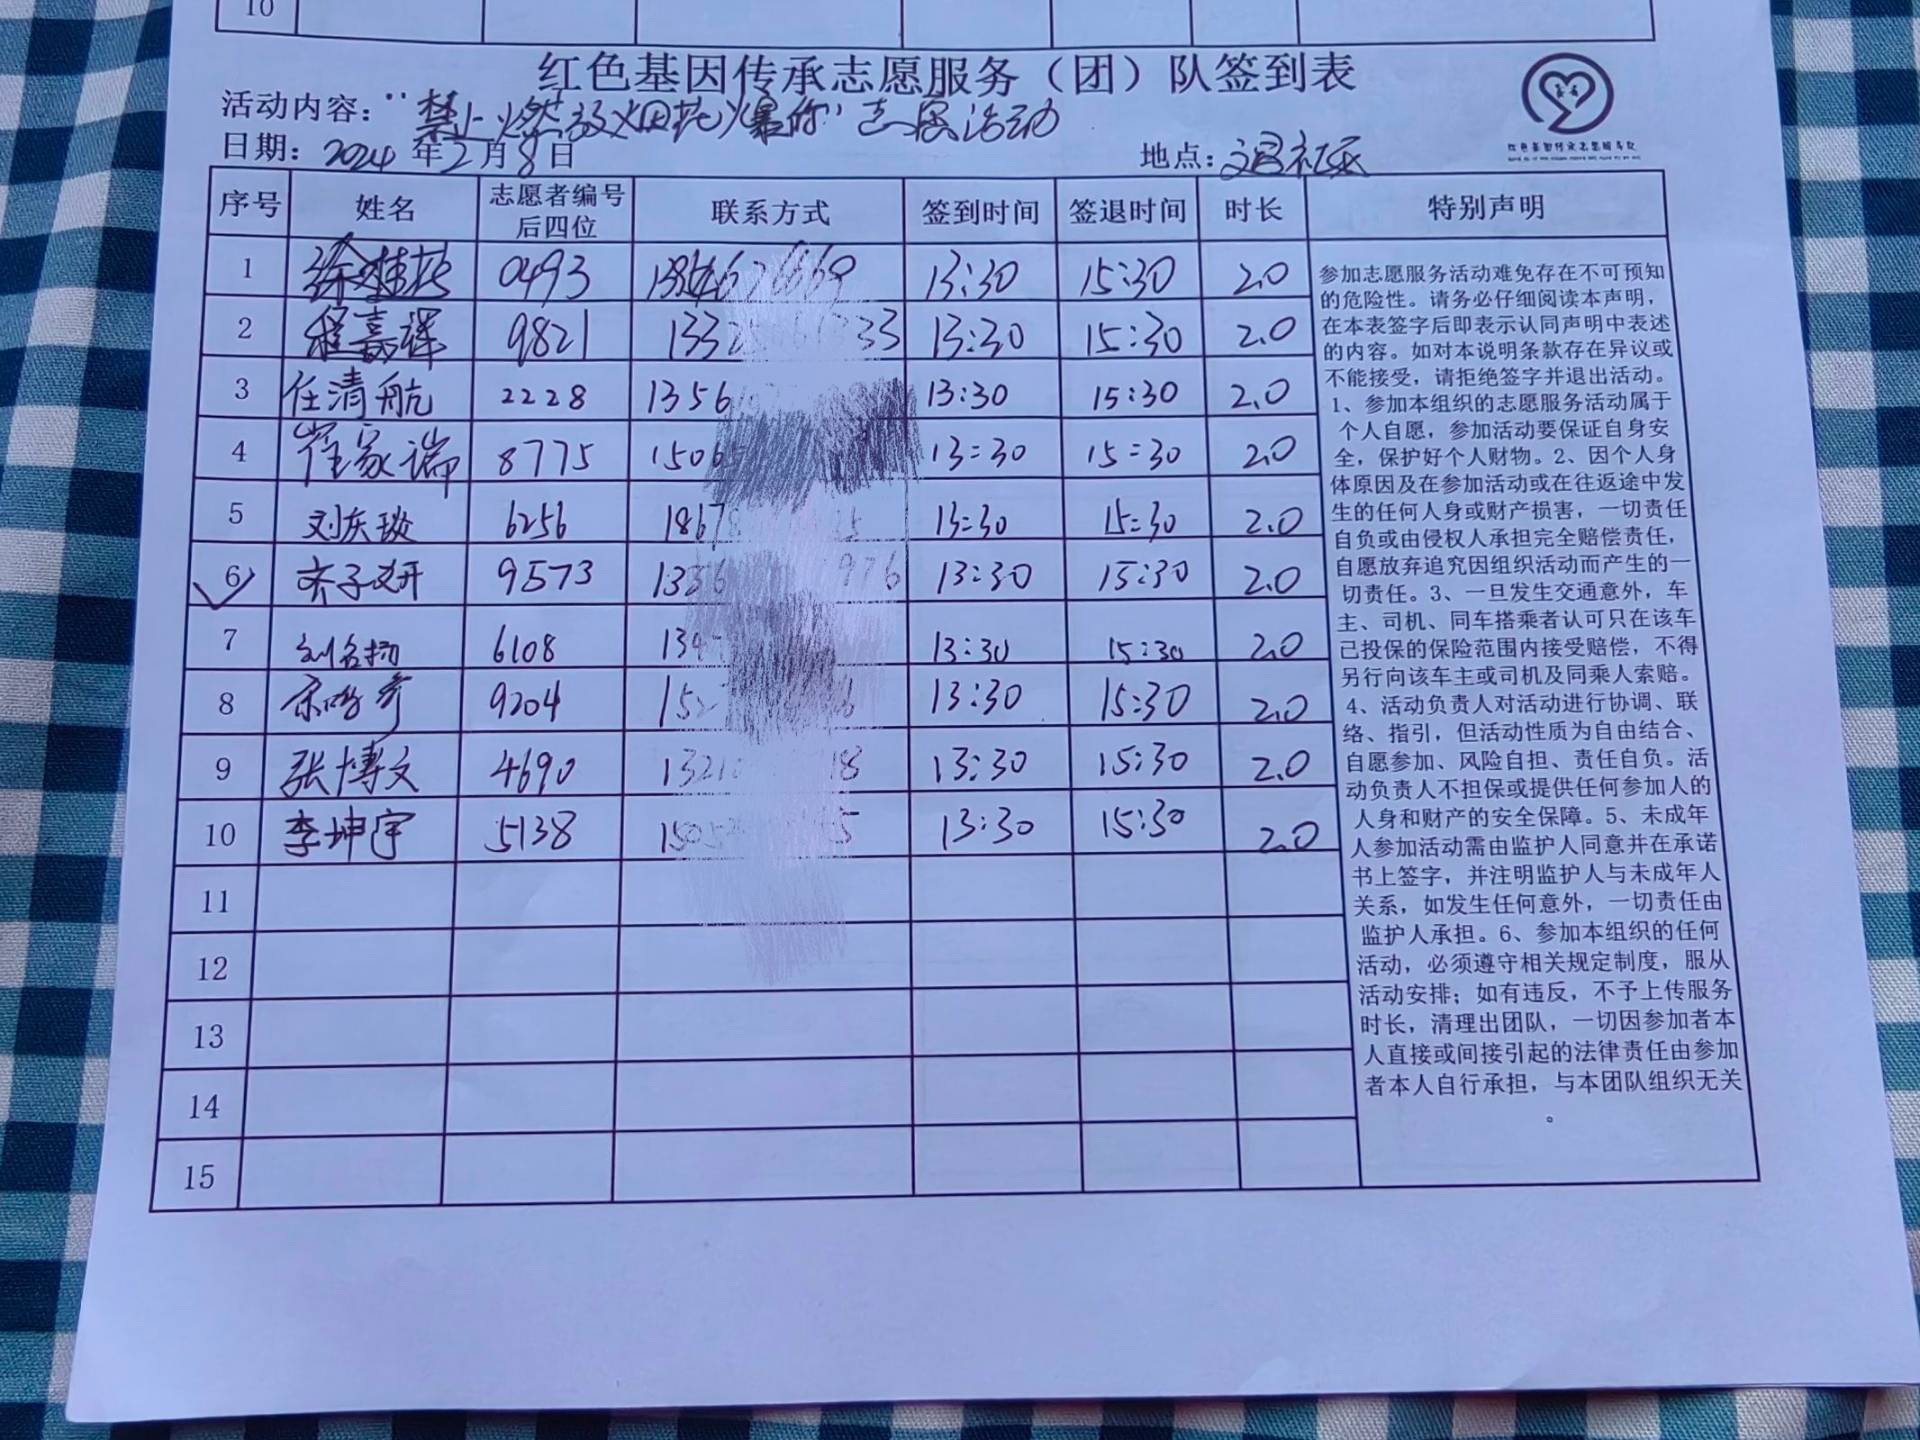 10
红色基因传承志愿服务（团）队签到表
活动内容："禁止燃放烟花爆竹"志愿活动
日期：2024年2月8日 地点：
序号 姓名 志愿者编号后四位 联系方式 签到时间 签退时间 时长 特别声明
1 0493 13:30 15:30 2.0
2 程嘉祥 9821 1332 33 13:30 15:30 2.0
3 任清航 2228 1356 13:30 15:30 2.0
4 崔家瑞 8775 1506 13:30 15:30 2.0
5 刘庆琰 6256 1867 13:30 15:30 2.0
6 齐子妍 9573 976 13:30 15:30 2.0
7 刘名扬 6108 134 13:30 15:30 2.0
8 9204 152 13:30 15:30 2.0
9 张博文 4690 1321 18 13:30 15:30 2.0
10 李坤宇 5138 1505 5 13:30 15:30 2.0
11
12
13
14
15
参加志愿服务活动难免存在不可预知
的危险性。请务必仔细阅读本声明，
在本表签字后即表示认同声明中表述
的内容。如对本说明条款存在异议或
不能接受，请拒绝签字并退出活动。
1、参加本组织的志愿服务活动属于
个人自愿，参加活动要保证自身安
全，保护好个人财物。2、因个人身
体原因及在参加活动或在往返途中发
生的任何人身或财产损害，一切责任
自负或由侵权人承担完全赔偿责任，
自愿放弃追究因组织活动而产生的一
切责任。3、一旦发生交通意外，车
主、司机、同车搭乘者认可只在该车
已投保的保险范围内接受赔偿，不得
另行向该车主或司机及同乘人索赔。
4、活动负责人对活动进行协调、联
络、指引，但活动性质为自由结合、
自愿参加、风险自担、责任自负。活
动负责人不担保或提供任何参加人的
人身和财产的安全保障。5、未成年
人参加活动需由监护人同意并在承诺
书上签字，并注明监护人与未成年人
关系，如发生任何意外，一切责任由
监护人承担。6、参加本组织的任何
活动，必须遵守相关规定制度，服从
活动安排；如有违反，不予上传服务
时长，清理出团队，一切因参加者本
人直接或间接引起的法律责任由参加
者本人自行承担，与本团队组织无关
。